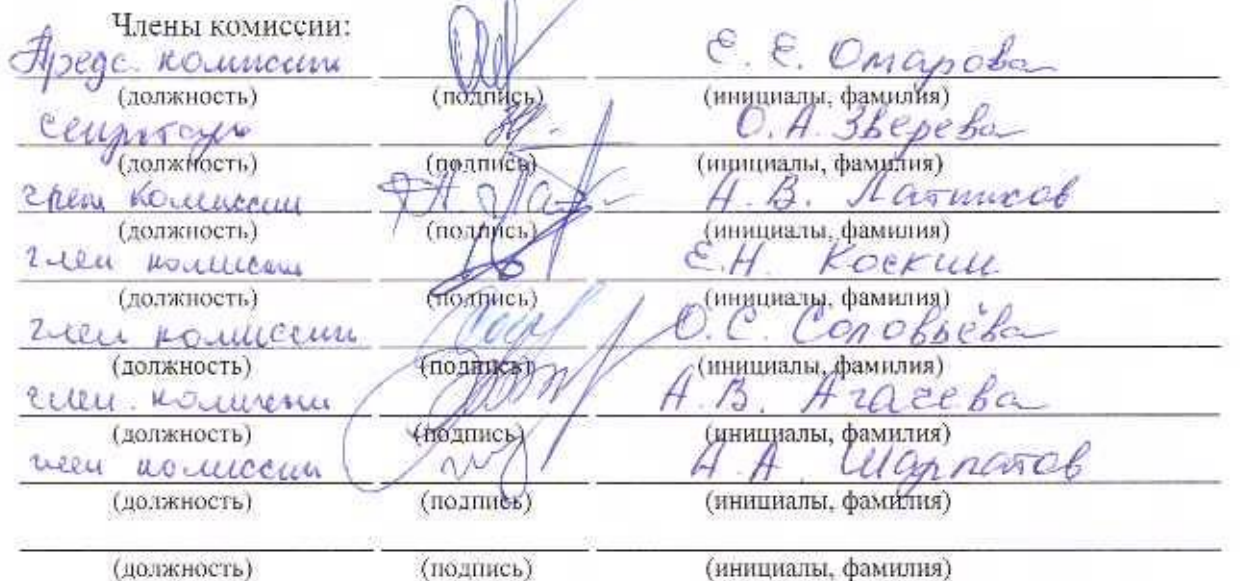 Члены комиссии:
Предс. комиссии Е. Е. Омарова
(должность) (подпись) (инициалы, фамилия)
секретарь О. А. Зверева
(должность) (подпись) (инициалы, фамилия)
член комиссии А. В. Латников
(должность) (подпись) (инициалы, фамилия)
член комиссии Е.Н. Коскин
(должность) (подпись) (инициалы, фамилия)
член комиссии О. С. Соловьёва
(должность) (подпись) (инициалы, фамилия)
член комиссии А. В. Агачева
(должность) (подпись) (инициалы, фамилия)
член комиссии А. А Шарпатов
(должность) (подпись) (инициалы, фамилия)
(должность) (подпись) (инициалы, фамилия)